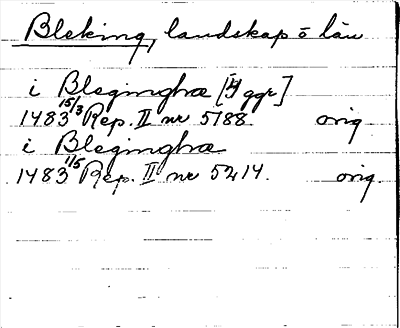 Bleking, landskap o län
i Bleginghæ [4 ggr]
1483 15/3 Rep. II nr 5188 orig
i Bleginghæ
1483 1/5 Rep. II nr 5214. orig.